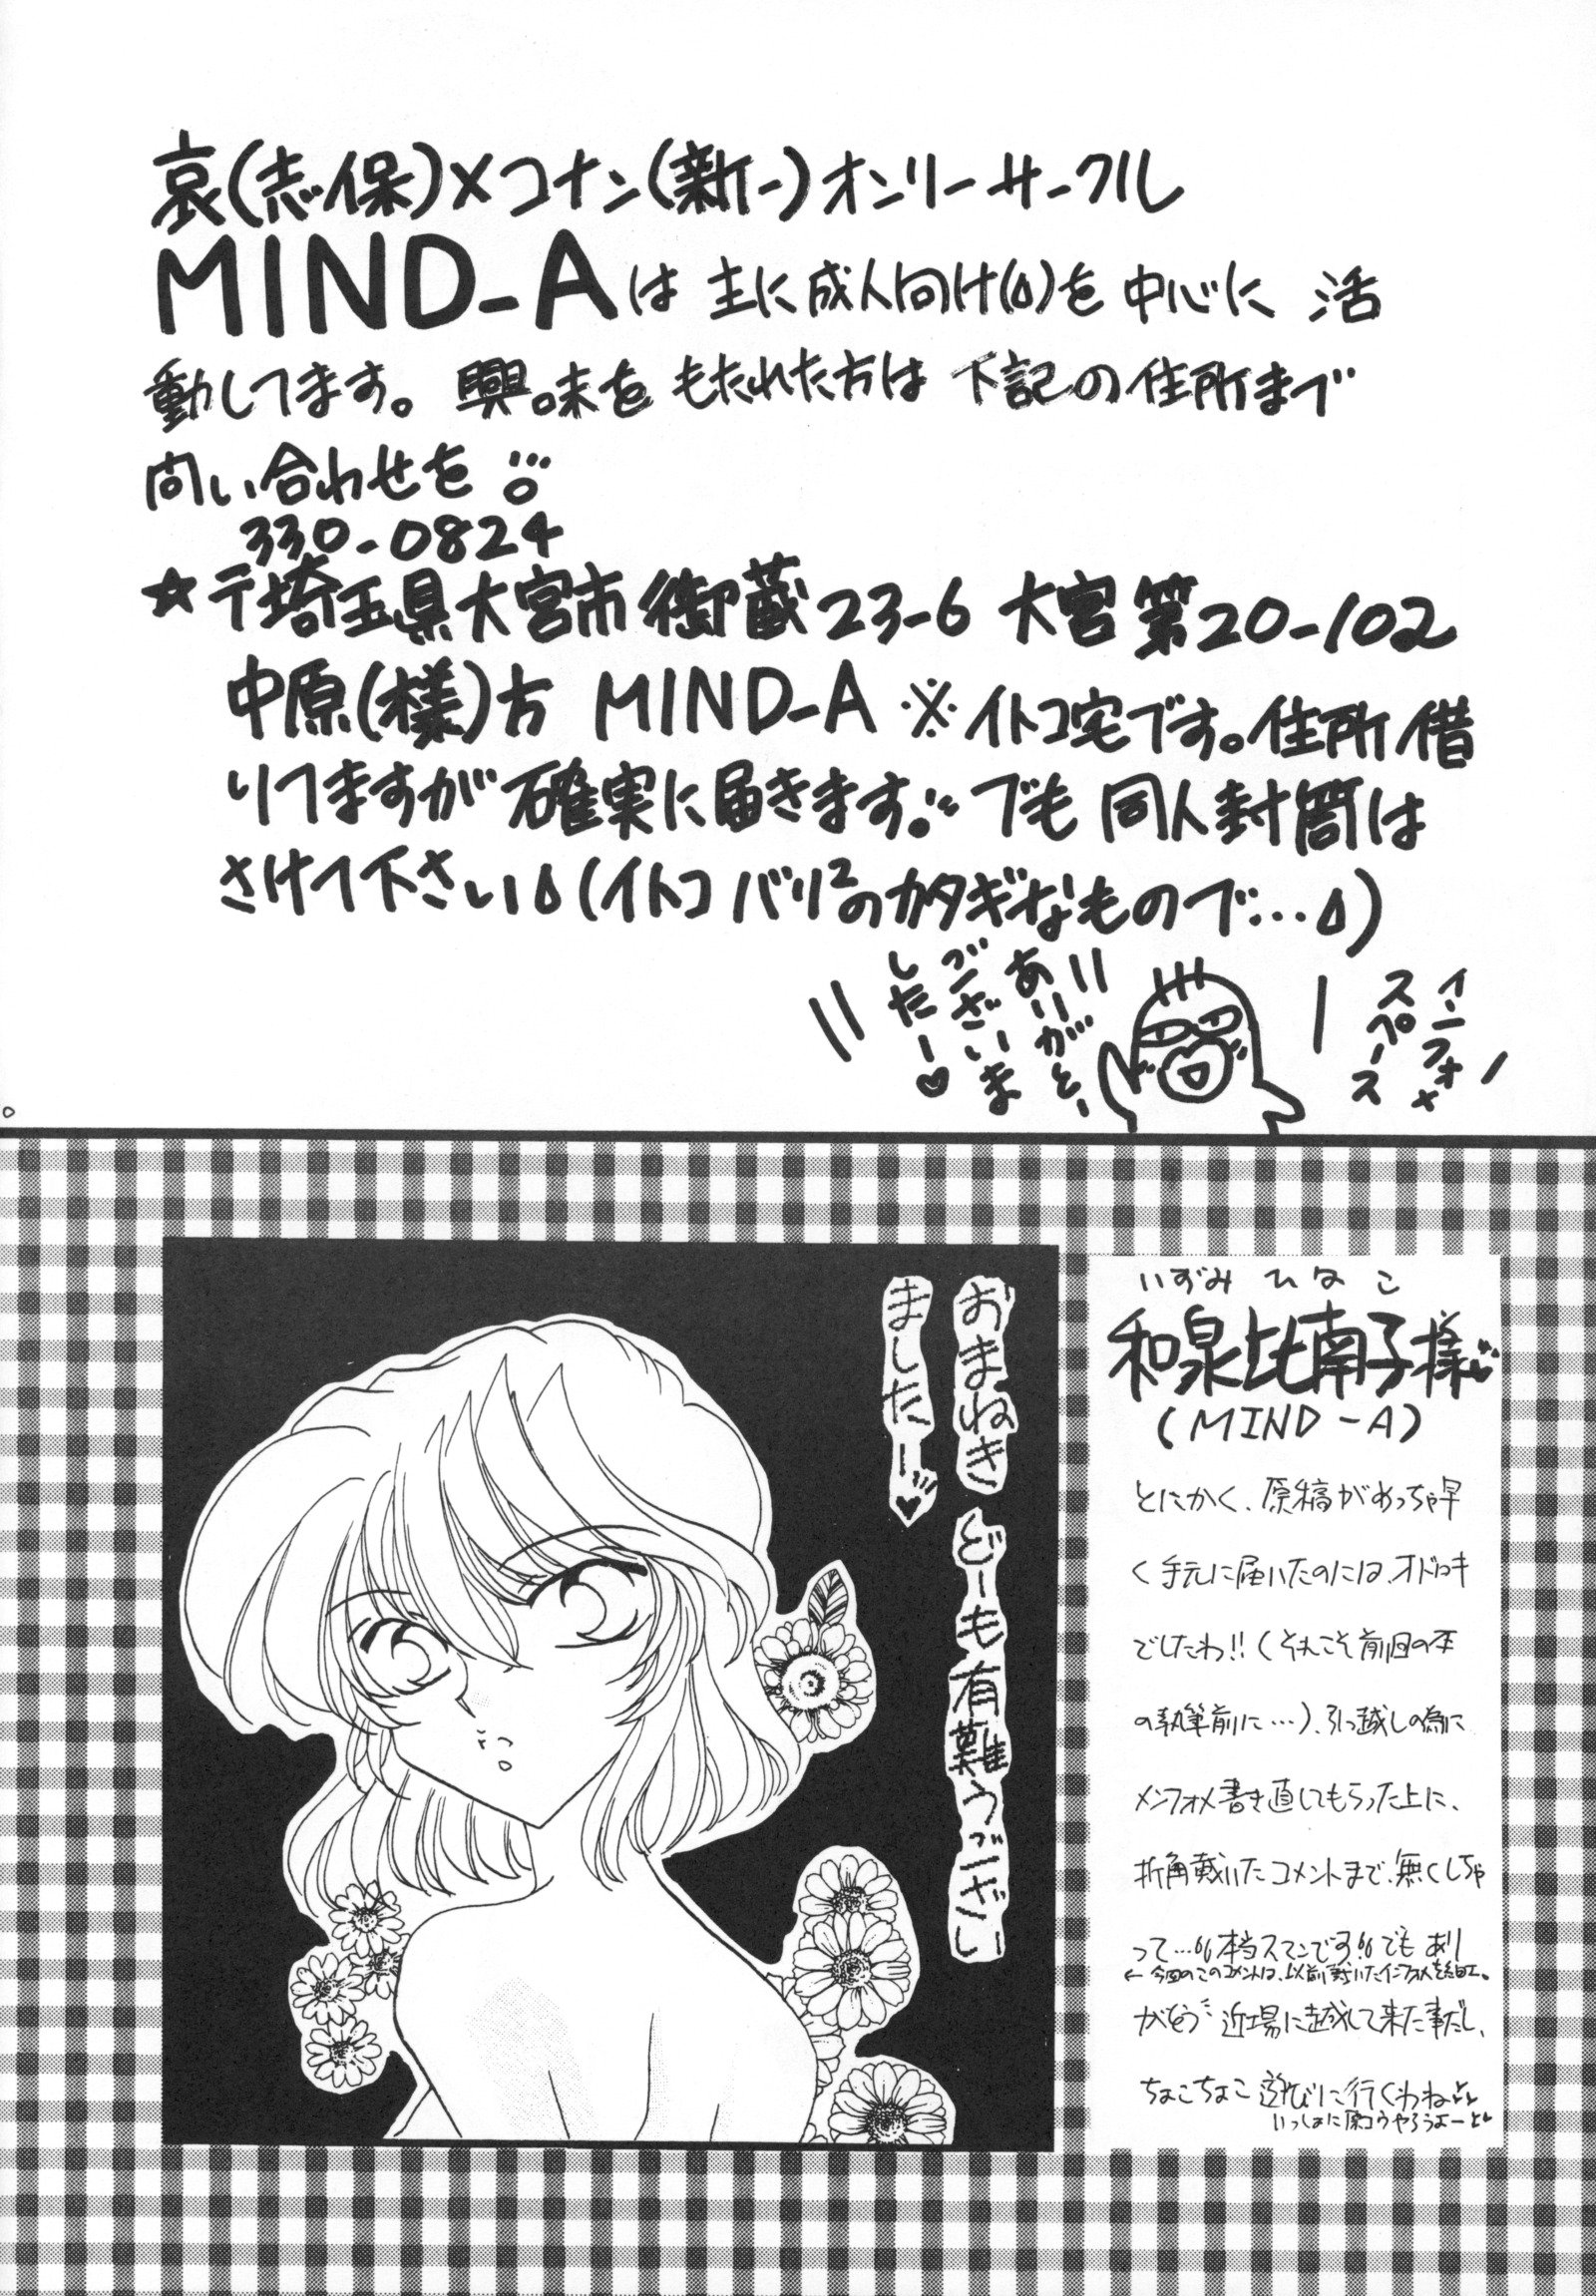 哀(志保)×コナン(新一)オンリーサークル
MIND-Aは 主に成人向け(δ)を 中心に 活
動してます。興味を もたれた方は 下記の住所まで
問い合わせを
330-0824
☆〒埼玉県大宮市御蔵23-6 大宮第20-102
中原(様)方 MIND-A ※イトコ宅です。住所借
りてますが確実に届きます。でも 同人封筒は
さけて下さいδ(イトコ バリ²のカタギなもので…δ)
インフォメ
スペース
ありがとー
ございま
したー♡
いずみ ひなこ
和泉比南子様
(MIND-A)
とにかく、原稿がめっちゃ早
く手元に届いたのには、オドロキ
でしたわ!!(それこそ前回の本
の執筆前に…)、引っ越しの為に
インフォメ書き直してもらった上に、
折角戴いたコメントまで、無くしちゃ
って…本当スマンです!! でも あり
←今回のこのコメントは、以前戴いたインフォメを
がとう 近場に越して来た事だし、
ちょこちょこ 遊びに行くわね
いっしょに原コウやろうよー
おまねき どーも有難うござい
ましたー♥